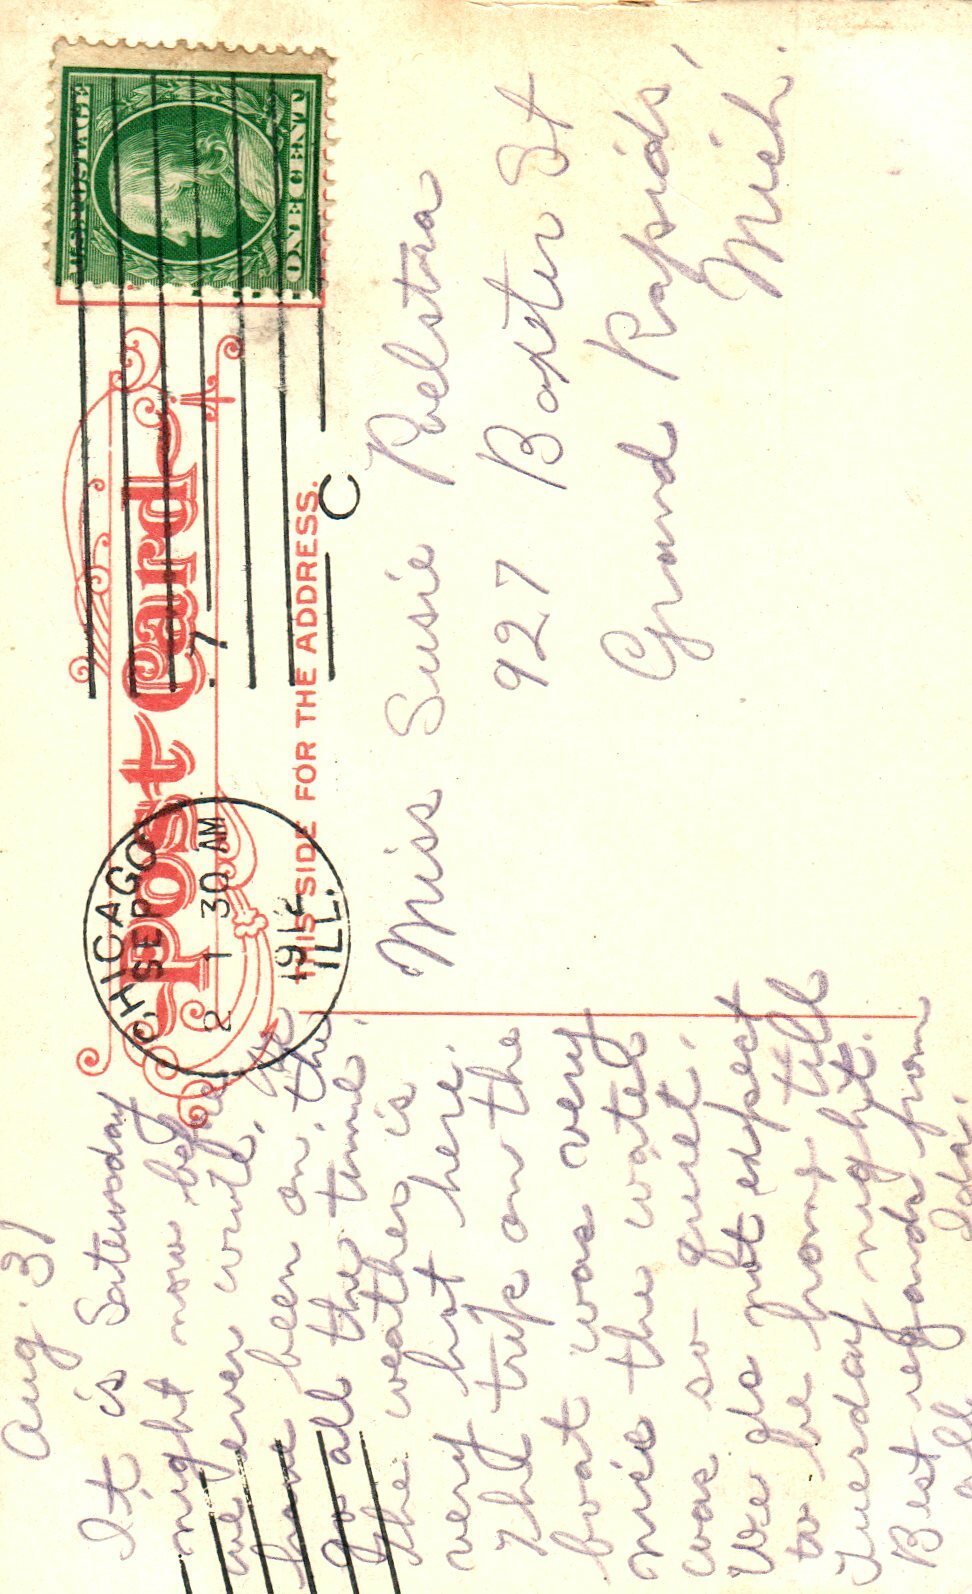 Aug. 31
It is Saterday
night now before
we ever write. We
have been on the
go all the time.
The weather is
very hot here.
The trip on the
boat was very
nice the watel
was so quiet.
We do not expect
to be home till
Tuersday night.
Best regards from
all Ida.
Post Card
THIS SIDE FOR THE ADDRESS.
CHICAGO
SEP
2 1 30 AM
191
ILL.
7
C
U.S. POSTAGE
ONE CENT
Miss Susie Pelstra
927 Baxter St
Grand Rapids,
Mich.